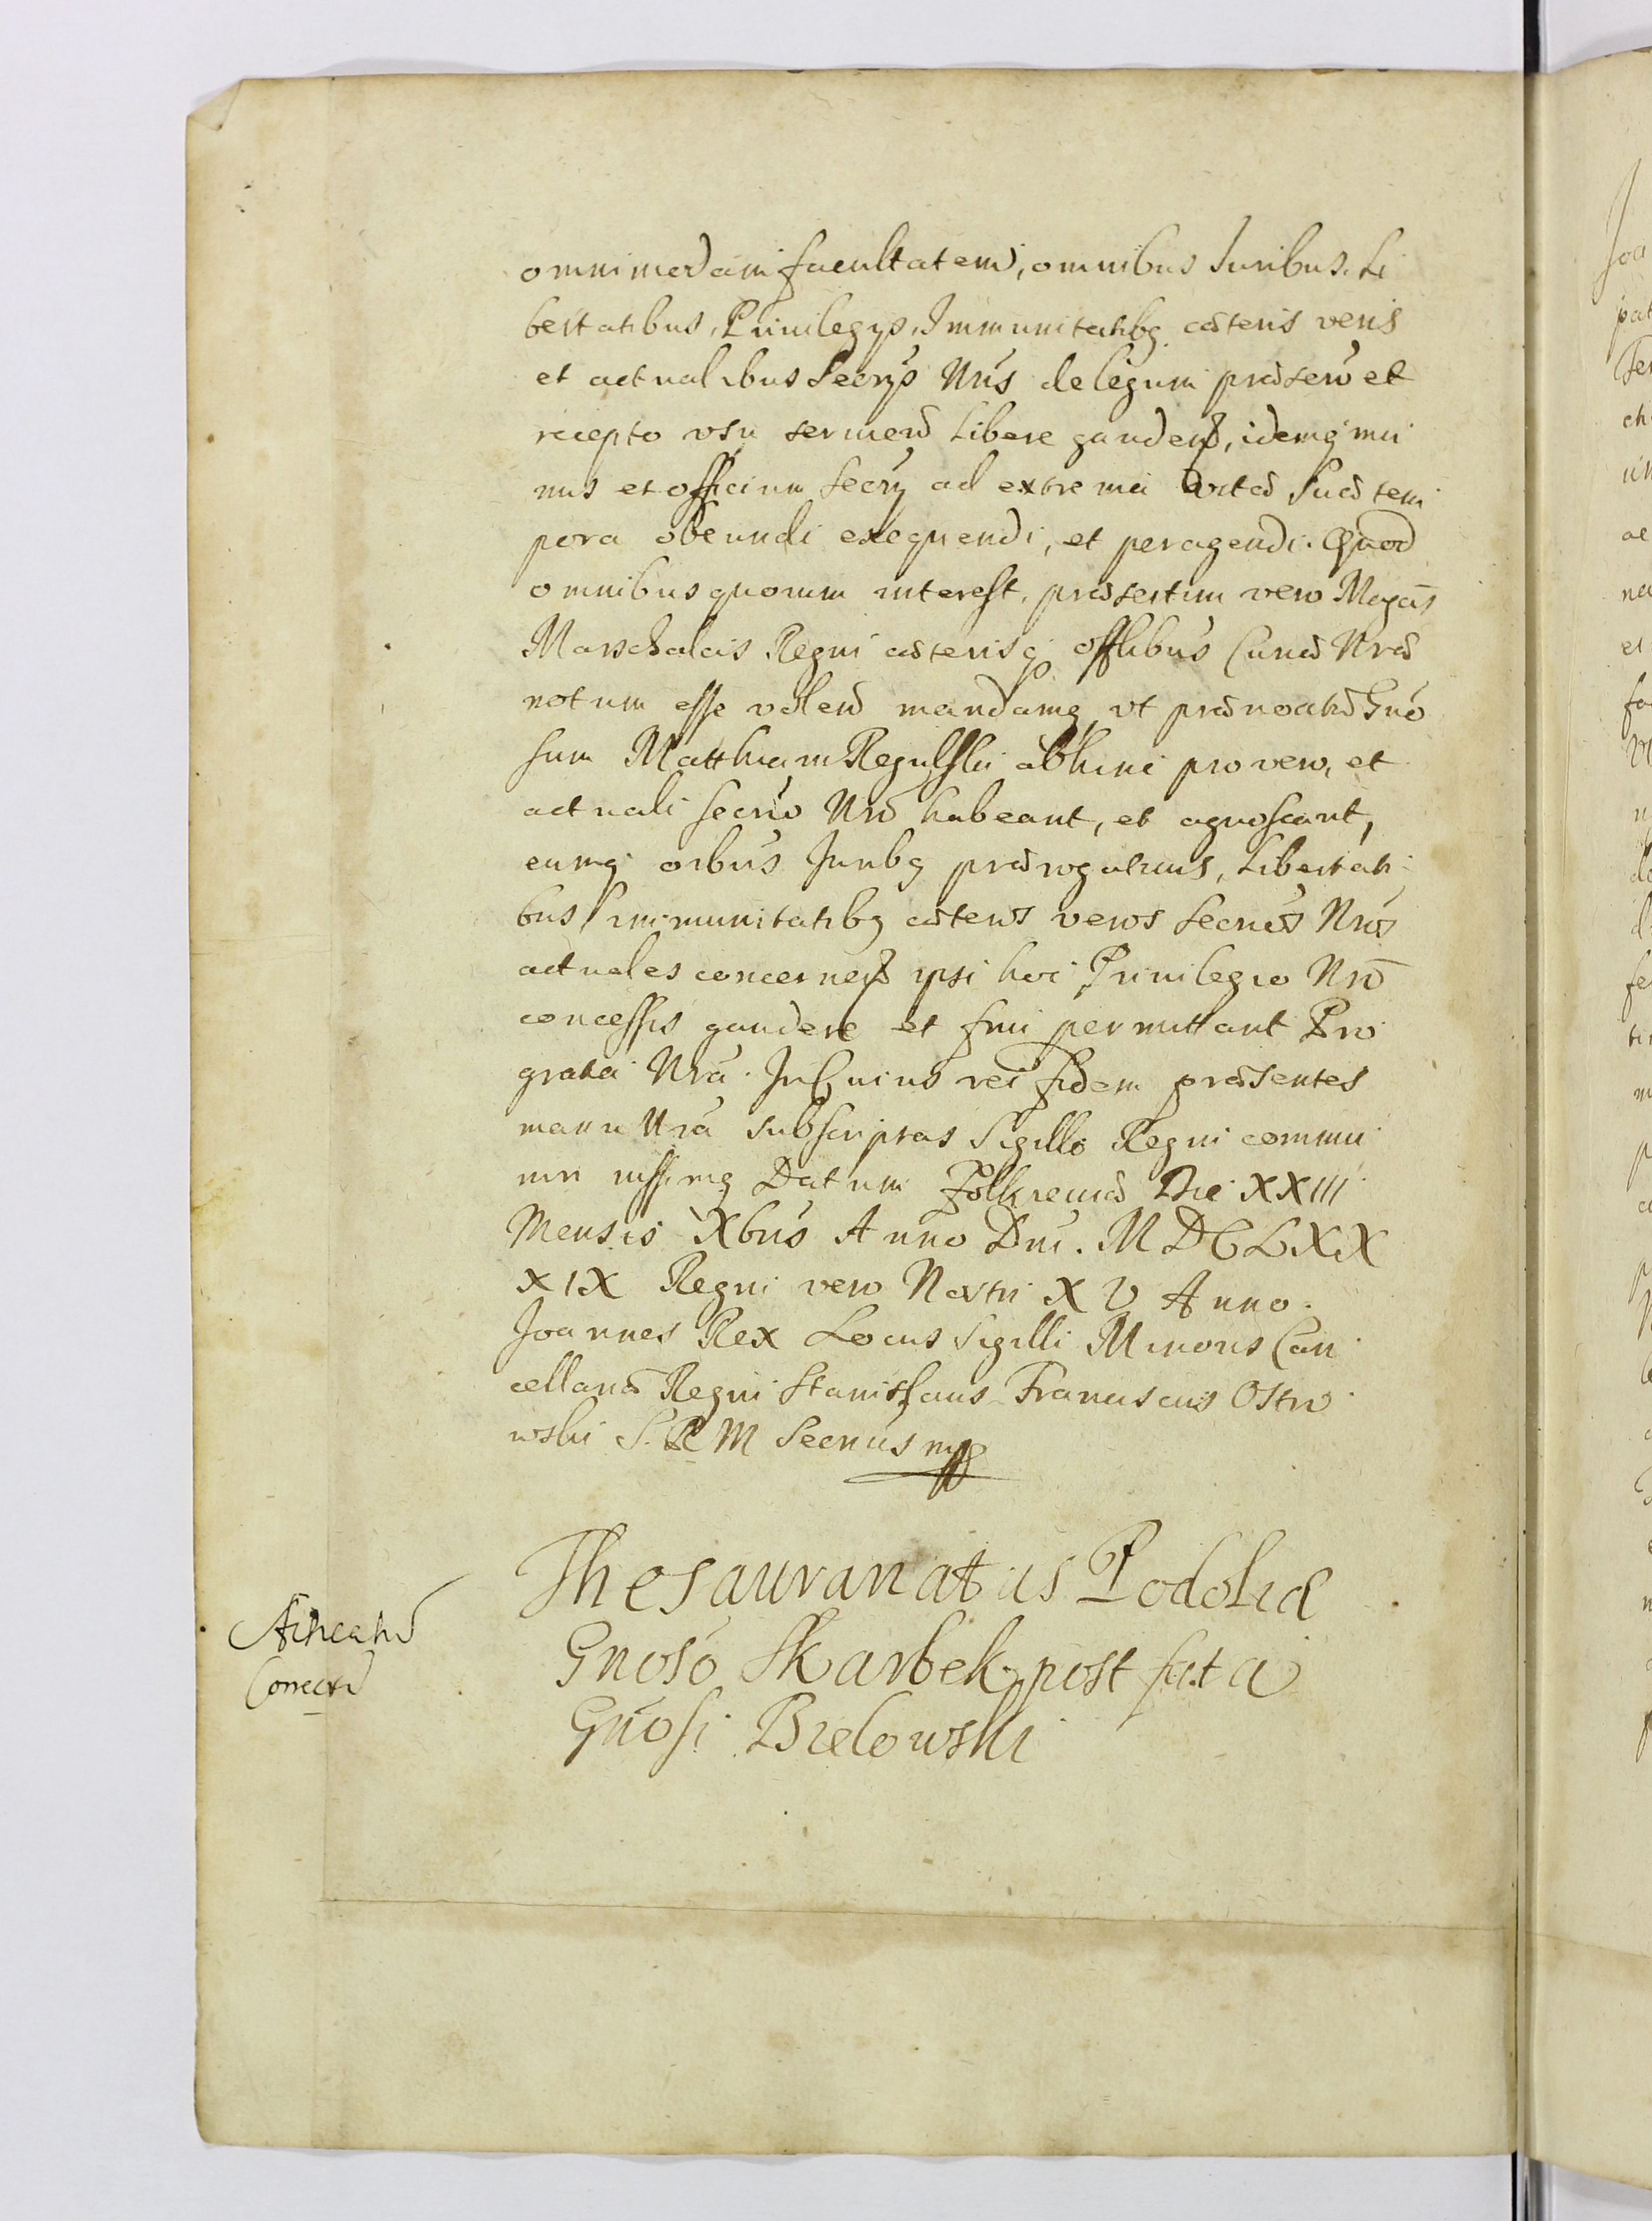 omnimodam facultatem, omnibus Juribus. Li
bertatibus, Priuilegijs, Immunitatibq cæteris veris
et actualibus Secrijs Nris de legum præscro et
recepto vsu seruiend libere gaudend, idemq mu
nus et officium Secrij ad extrema vitæ suæ tem
pora obeundi exequendi, et peragendi. Quod
omnibus quorum interest, præsertim vero Magcis
Marschalcis Regni cæterisq offlibus Curiæ Nræ
notum esse volend mandamq vt prænoatu Gno
sum Matthiam Regulski abhinc pro vero, et
actuali secrio Nro habeant, et agnoscant,
eumq oibus Juribq prærogatiuis, Libertati
bus immunitatibq cæteros veros Secrios Nros
actuales concernen ipsi hoc Priuilegio Nro
concessis gaudere et frui permittant Pro
gratia Nra. In Cuius rei fidem præsentes
manu Nra subscriptas Sigillo Regni commu
niri iussimq Datum Zolkieuiæ Die XXIII
Mensis Xbris Anno Dni. MDCLXX
XIX Regni vero Nostri XV Anno.
Joannes Rex Locus Sigilli Minoris Can
cellariæ Regni Stanislaus Franciscus Ostro
wski S. R M Secrius mp
Thesaurariatus Podoliæ
Gnoso Skarbek post fata
Gnosi Bielowski
Correctu